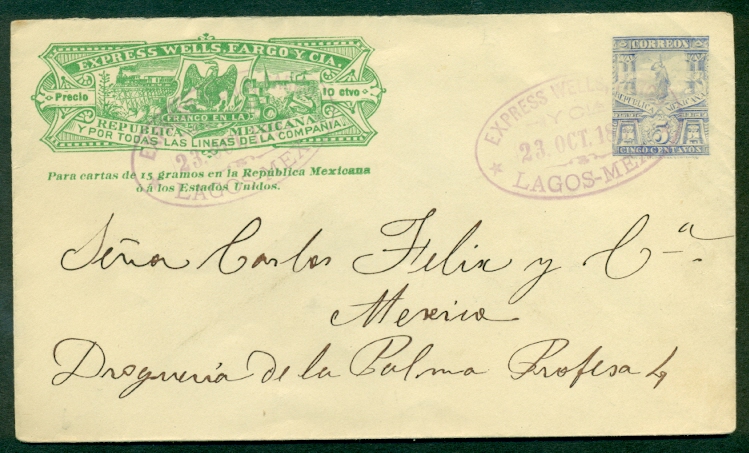 EXPRESS WELLS, FARGO Y CIA.
Precio 10 ctvo
FRANCO EN LA
REPUBLICA MEXICANA
Y POR TODAS LAS LINEAS DE LA COMPAÑIA.
Para cartas de 15 gramos en la República Mexicana
ó á los Estados Unidos.
23.
LAGOS-MEX
CORREOS
REPUBLICA MEXICANA
5
CINCO CENTAVOS
EXPRESS WELLS
Y CIA
23. OCT. 18
LAGOS-MEX
Seña Carlos Felix y Cª.
Mexico
Drogueria de la Palma Profesa 4